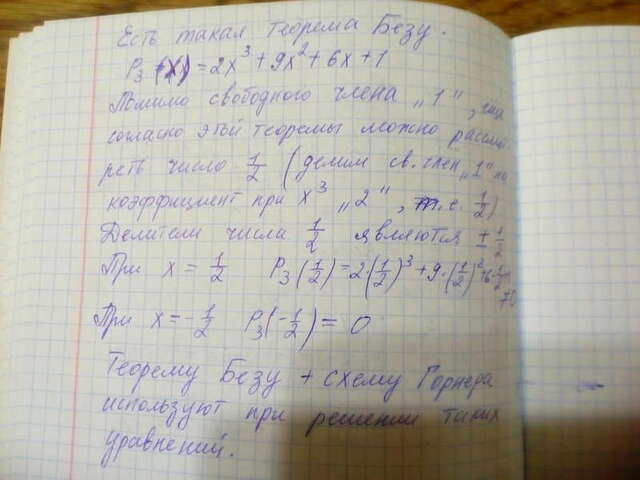 Есть такая Теорема Безу.
P₃(x) = 2x³ + 9x² + 6x + 1
Помимо свободного члена „1",
согласно этой теоремы можно рассмот
реть число 1/2 (делим св. член „1" на
коэффициент при x³ „2", т.е. 1/2)
Делители числа 1/2 являются ± 1/2
При x = 1/2 P₃(1/2) = 2·(1/2)³ + 9·(1/2)² + 6·1/2
При x = -1/2 P₃(-1/2) = 0
Теорему Безу + схему Горнера
используют при решении таких
уравнений.